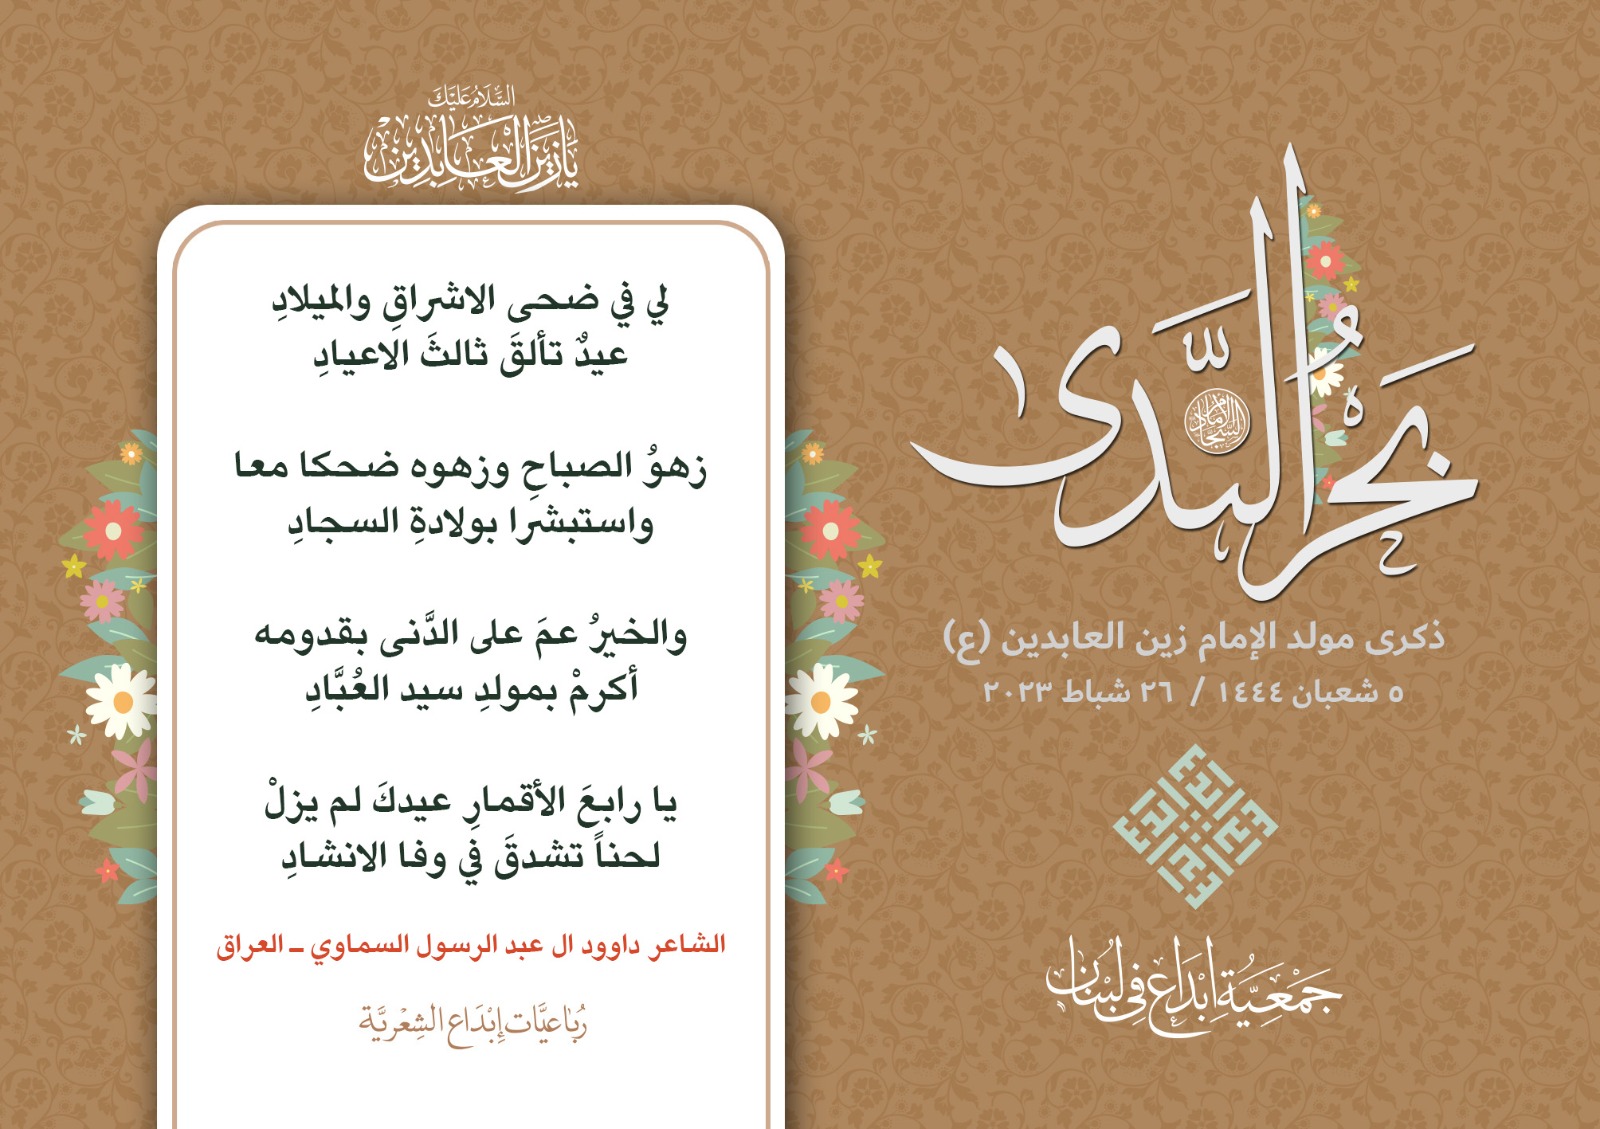 بَحْرُ النَّدى
الإمام السجاد
ذكرى مولد الإمام زين العابدين (ع)
٥ شعبان ١٤٤٤ / ٢٦ شباط ٢٠٢٣
إبداع
جَمْعِيَّة إِبْدَاع فِي لُبْنَان
السَّلَامُ عَلَيْكَ
يَا زَيْنَ الْعَابِدِين
لي في ضحى الاشراقِ والميلادِ
عيدٌ تألقَ ثالثَ الاعيادِ
زهوُ الصباحِ وزهوه ضحكا معا
واستبشرا بولادةِ السجادِ
والخيرُ عمَ على الدَّنى بقدومه
أكرمْ بمولدِ سيد العُبَّادِ
يا رابعَ الأقمارِ عيدكَ لم يزلْ
لحناً تشدقَ في وفا الانشادِ
الشاعر داوود ال عبد الرسول السماوي ــ العراق
رُبَاعيَّات إِبْدَاع الشِعْريَّة